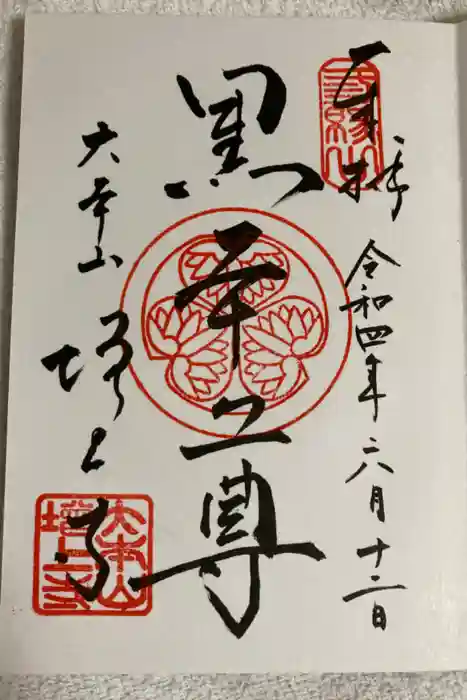 奉拝
三縁山
令和四年六月十二日
黒本尊
大本山
増上寺
大本山
増上寺